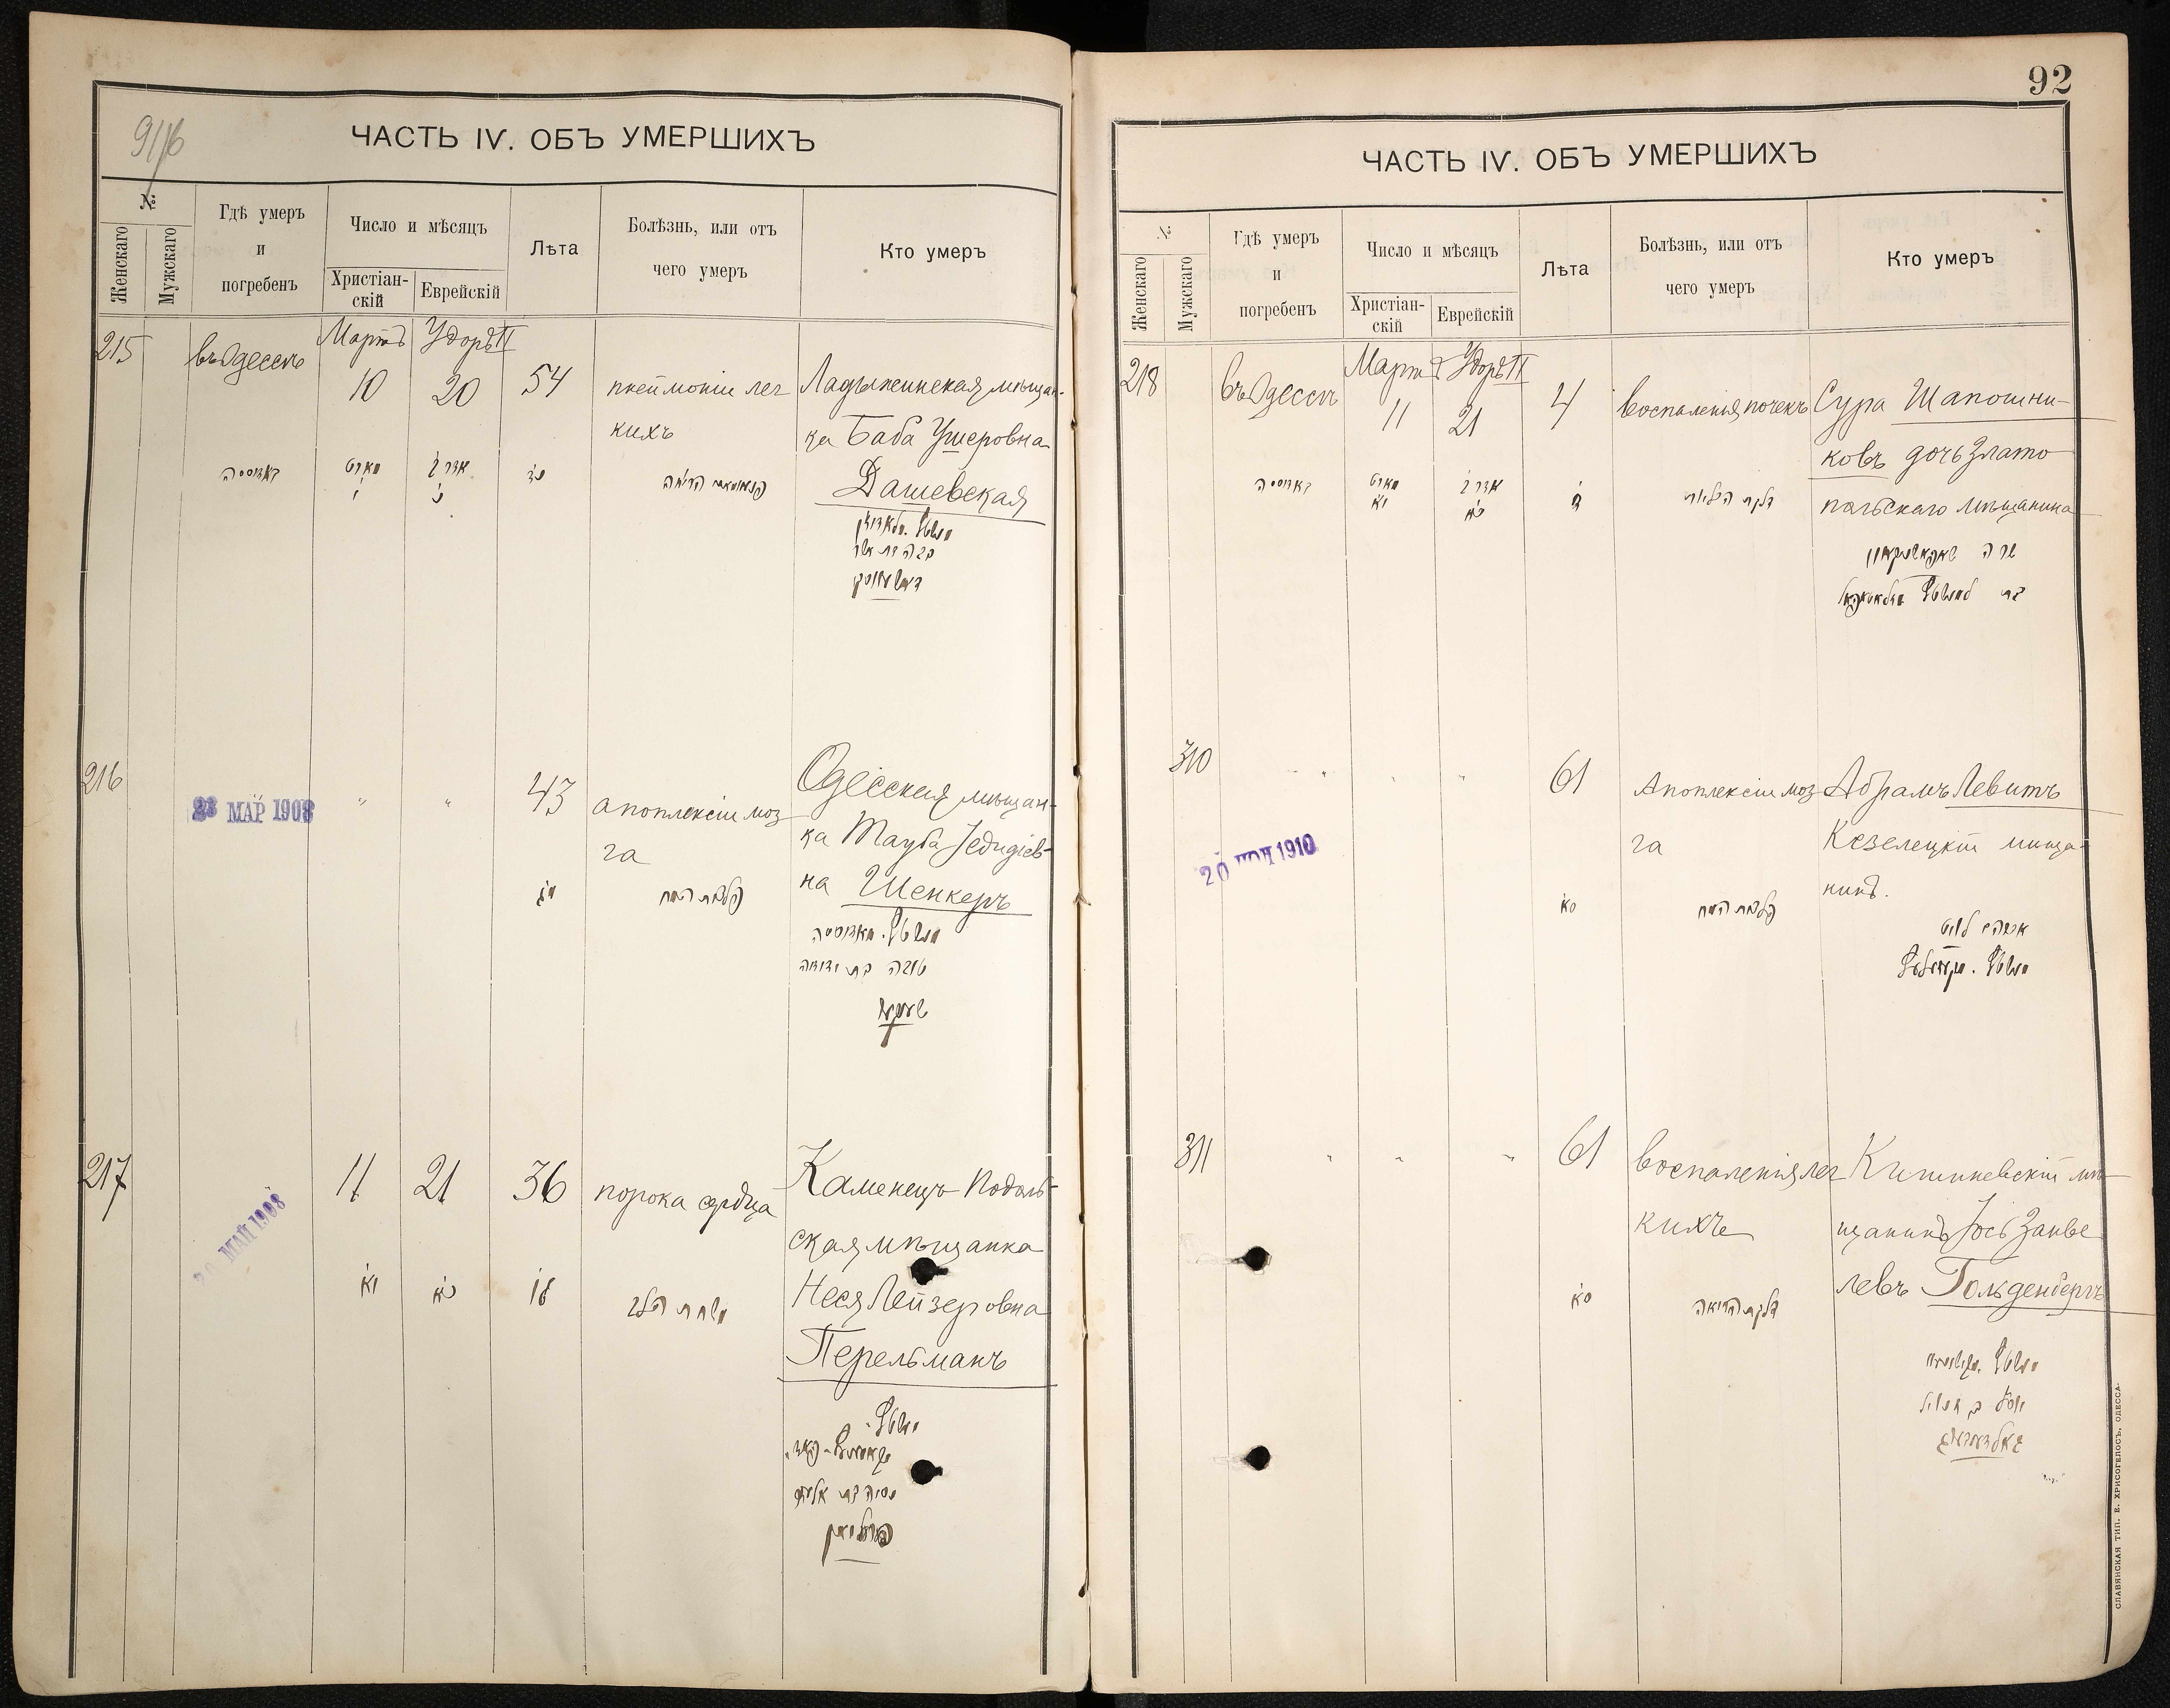 91/16
ЧАСТЬ IV. ОБЪ УМЕРШИХЪ
№
Женскаго
Мужскаго
Гдѣ умеръ
и
погребенъ
Число и мѣсяцъ
Христіан-
скій
Еврейскій
Лѣта
Болѣзнь, или отъ
чего умеръ
Кто умеръ
215
въ Одессѣ
Мартъ
10
Удоръ II
20
54
пнеймоніи лег
кихъ
Ладыжинская мѣщан-
ка Баба Ушеровна
Дашевская
באדעססה
מארט
י
אדר ב
כ
נד
דאשעווסקי
216
23 МАР 1908
"
"
43
апоплексіи моз
га
Одесская мѣщан-
ка Тауба Іедидіев-
на Шенкеръ
מג
שענקער
217
МАЙ 1908
11
21
36
порока сердца
Каменецъ Подоль-
ская мѣщанка
Неся Лейзеровна
Перельманъ
יא
כא
לו
פערלמאן
92
ЧАСТЬ IV. ОБЪ УМЕРШИХЪ
№
Женскаго
Мужскаго
Гдѣ умеръ
и
погребенъ
Число и мѣсяцъ
Христіан-
скій
Еврейскій
Лѣта
Болѣзнь, или отъ
чего умеръ
Кто умеръ
218
въ Одессѣ
Мартъ
11
Удоръ II
21
4
воспаленія почекъ
Сура Шапошни-
ковъ дочь Злато
польскаго мѣщанина
באדעססה
מארט
יא
אדר ב
כא
ד
דלקת הכליות
שרה שאפאשניקאוו
310
"
"
"
20 1910
61
Апоплексіи моз
га
Абрамъ Левитъ
Кезелецкій мѣща-
нинъ.
סא
אברהם לוויט
311
"
"
"
61
воспаленія лег
кихъ
Кишиневскій мѣ-
щанинъ Іось Занве
левъ Гольденбергъ
סא
דלקת הריאה
גאלדענבערג
СЛАВЯНСКАЯ ТИП. Е. ХРИСОГЕЛОСЪ, ОДЕССА.